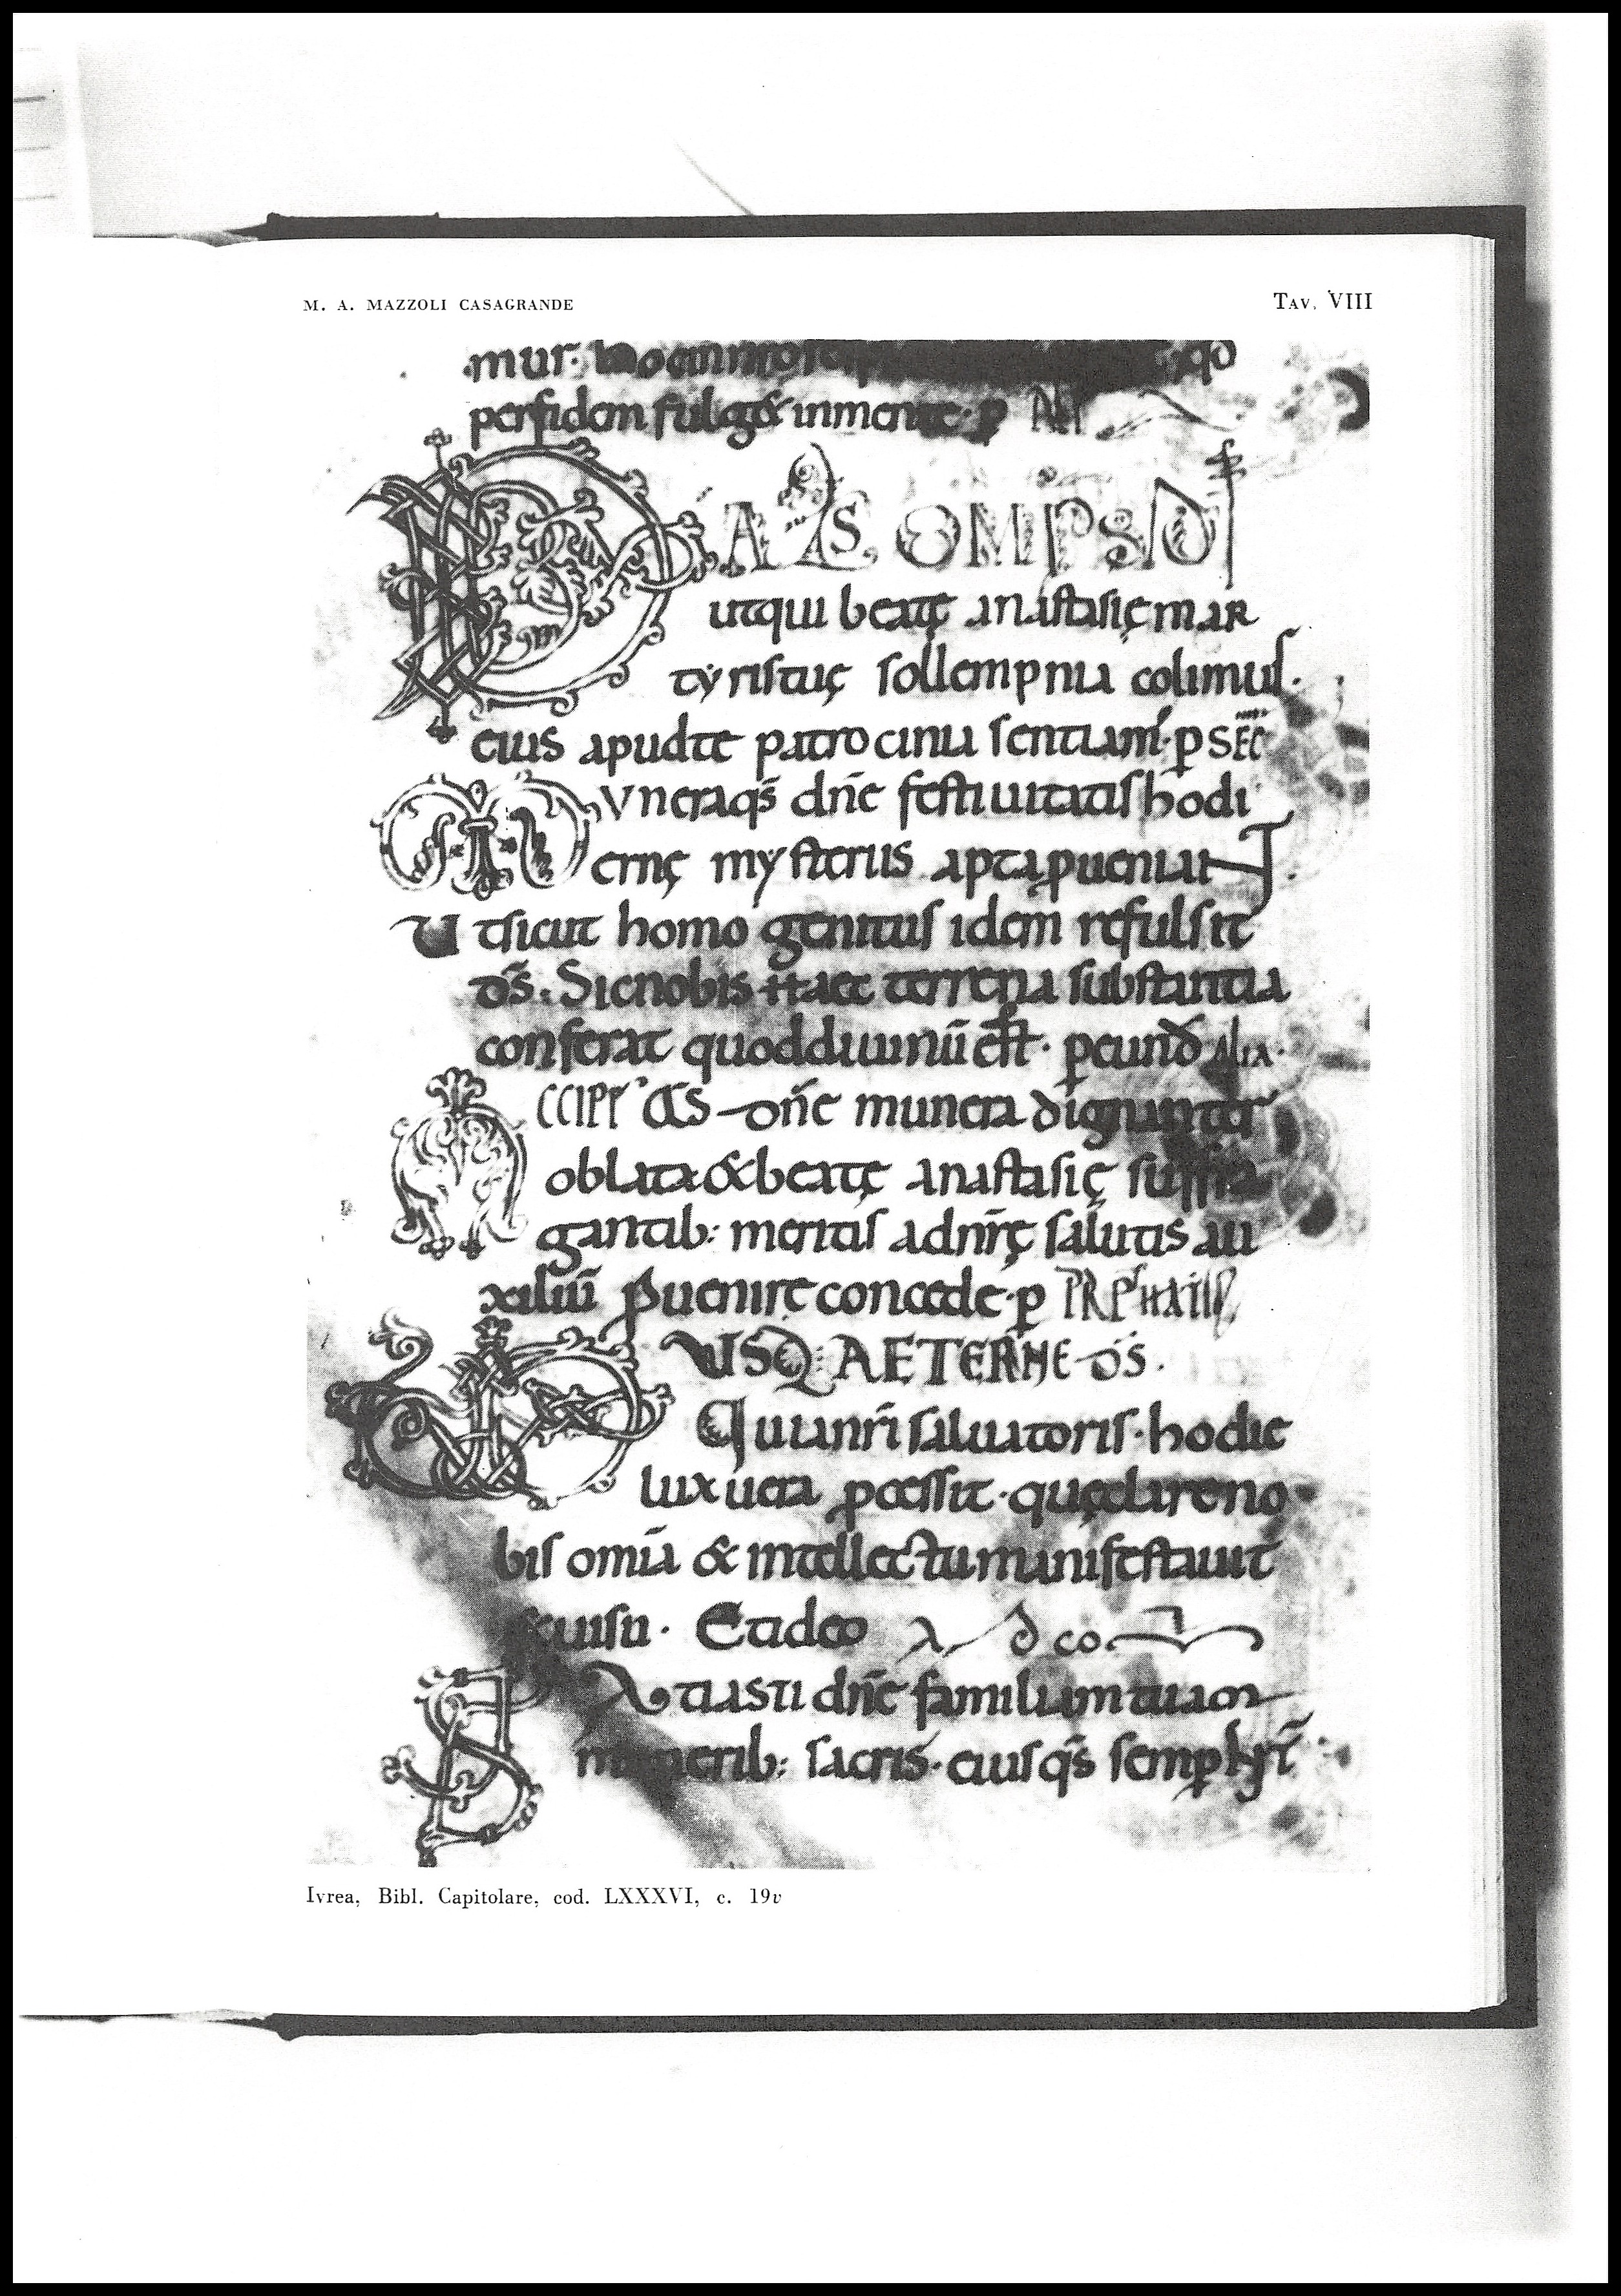 M. A. MAZZOLI CASAGRANDE
TAV. VIII
mur.
perfidem fulg& inmente. p̄
DA QS OMPS DS
utqui beatę anastasię mar
tyristuę sollempnia colimus.
eius apudte patrocinia sentiam̄. p SEC̄
MVneraqs̄ dn̄e festiuitatis hodi
ernę mysteriis apta ꝓueniant.
Utsicut homo genitus idem refulsit
ds̄. Sicnobis haec terrena substantia
conferat quoddiuinū est. p eund ALIA.
ACCIPE QS dn̄e munera dignanter
oblata & beatę anastasię suffra
gantib: meritis adnr̄ę salutis au
xiliū ꝓuenire concede. p̄
VD USQ: AETERNE ds̄.
Quianr̄i saluatoris. hodie
lux uera ꝓcessit. quęclareno
bis om̄ia & intellectu manifestauit
&uisu. Etideo
SAtiasti dn̄e familiam tuam
munerib: sacris. eiusqs̄ semp
Ivrea, Bibl. Capitolare, cod. LXXXVI, c. 19v